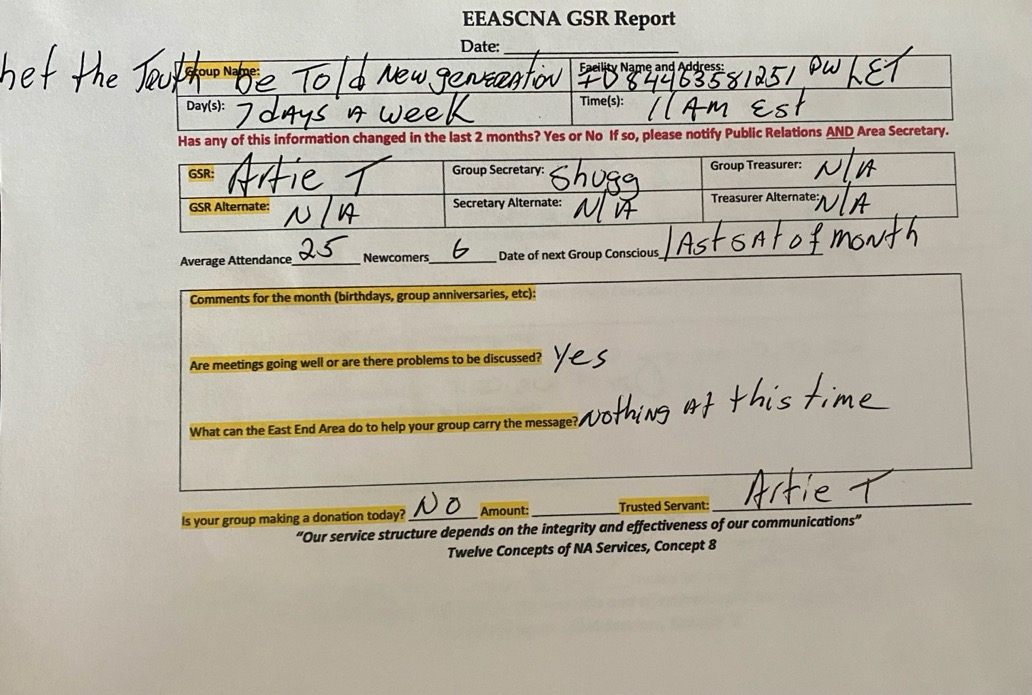 EEASCNA GSR Report
Date:
Group Name: Let the Truth be Told New generation
Facility Name and Address: ID 84463581251 PW LET
Day(s): 7 days a week
Time(s): 11 AM Est
Has any of this information changed in the last 2 months? Yes or No If so, please notify Public Relations AND Area Secretary.
GSR: Artie T Group Secretary: Shugg Group Treasurer: N/A
GSR Alternate: N/A Secretary Alternate: N/A Treasurer Alternate: N/A
Average Attendance 25 Newcomers 6 Date of next Group Conscious last SAt of month
Comments for the month (birthdays, group anniversaries, etc):
Are meetings going well or are there problems to be discussed? Yes
What can the East End Area do to help your group carry the message? Nothing At this time
Is your group making a donation today? NO Amount: Trusted Servant: Artie T
"Our service structure depends on the integrity and effectiveness of our communications"
Twelve Concepts of NA Services, Concept 8